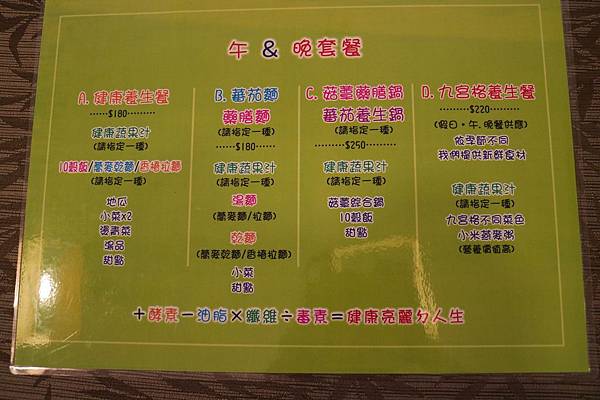 午 & 晚套餐
A. 健康養生餐
........$180........
健康蔬果汁
(請指定一種)
10穀飯/蕎麥乾麵/香椿拉麵
(請指定一種)
地瓜
小菜x2
燙青菜
湯品
甜點
B. 蕃茄麵
藥膳麵
(請指定一種)
........$180........
健康蔬果汁
(請指定一種)
湯麵
(蕎麥麵/拉麵)
乾麵
(蕎麥乾麵/香椿拉麵)
小菜
甜點
C. 菇蕈藥膳鍋
蕃茄養生鍋
(請指定一種)
........$250........
健康蔬果汁
(請指定一種)
菇蕈綜合鍋
10穀飯
甜點
D. 九宮格養生餐
........$220........
(假日。午. 晚餐供應)
依季節不同
我們提供新鮮食材
健康蔬果汁
(請指定一種)
九宮格不同菜色
小米燕麥粥
(營養價值高)
＋酵素－油脂×纖維÷毒素＝健康亮麗ㄉ人生